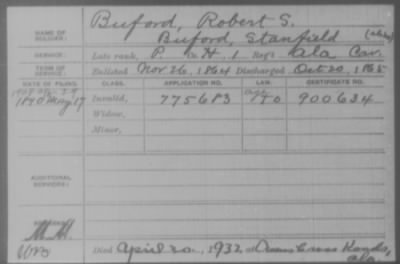 NAME OF SOLDIER: Buford, Robert S.
Buford, Stanfield (alias)
SERVICE: Late rank, P. Co. H, 1 Reg't Ala Cav.
TERM OF SERVICE: Enlisted Nov. 26, 1864 Discharged Oct 20, 1865
DATE OF FILING. CLASS. APPLICATION NO. LAW. CERTIFICATE NO.
1890 May 17 Invalid, 775683 900634
Widow,
Minor,
ADDITIONAL SERVICES:
Died April 20, 1932, at Cross Roads,
Ala.